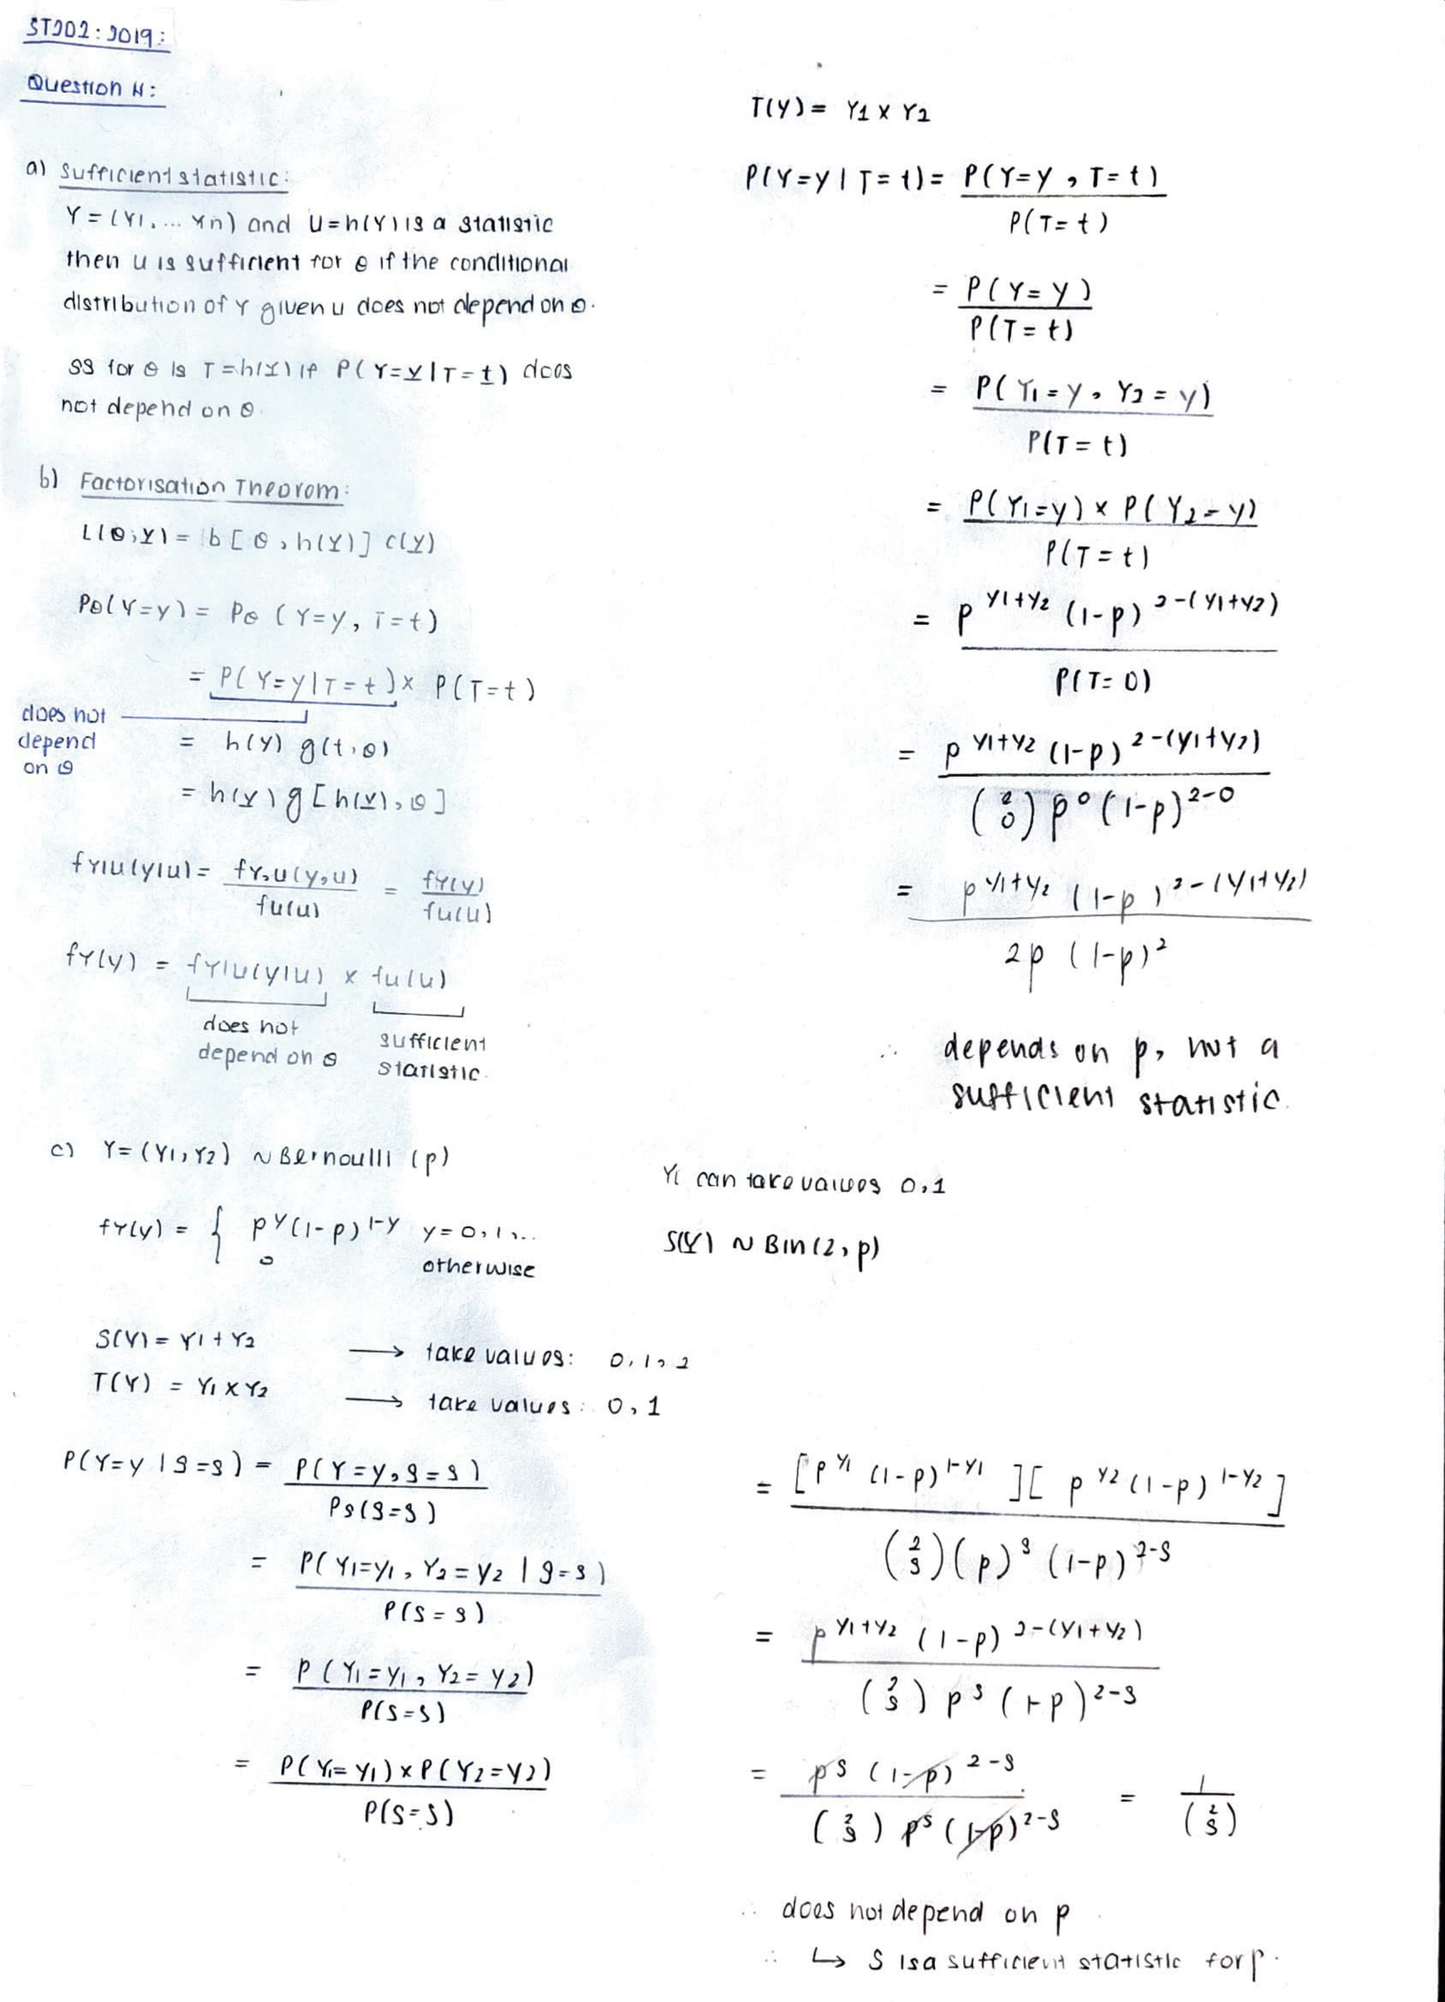 ST202: 2019:
Question 4:
a) Sufficient statistic:
Y = (Y1, ... Yn) and U = h(Y) is a statistic
then U is sufficient for θ if the conditional
distribution of Y given U does not depend on θ.
SS for θ is T = h(Y) if P(Y=y | T=t) does
not depend on θ.
b) Factorisation Theorom:
L(θ; y) = b[θ, h(y)] c(y)
Pθ(Y=y) = Pθ (Y=y, T=t)
= P(Y=y | T=t) x P(T=t)
does not
depend
on θ
= h(y) g(t, θ)
= h(y) g[h(y), θ]
fY|U(y|u) = fY,U(y,u) / fU(u) = fY(y) / fU(u)
fY(y) = fY|U(y|u) x fU(u)
does not
depend on θ
sufficient
statistic.
c) Y = (Y1, Y2) ~ Bernoulli (p)
fY(y) = { p^y (1-p)^1-y y = 0, 1, ..
0 otherwise
S(Y) = Y1 + Y2 → take values: 0, 1, 2
T(Y) = Y1 x Y2 → take values: 0, 1
P(Y=y | S=s) = P(Y=y, S=s) / Ps(S=s)
= P(Y1=y1, Y2=y2 | S=s) / P(S=s)
= P(Y1=y1, Y2=y2) / P(S=s)
= P(Y1=y1) x P(Y2=y2) / P(S=s)
T(Y) = Y1 x Y2
P(Y=y | T=t) = P(Y=y, T=t) / P(T=t)
= P(Y=y) / P(T=t)
= P(Y1=y, Y2=y) / P(T=t)
= P(Y1=y) x P(Y2=y) / P(T=t)
= p^y1+y2 (1-p)^2-(y1+y2) / P(T=0)
= p^y1+y2 (1-p)^2-(y1+y2) / (2 0) p^0 (1-p)^2-0
= p^y1+y2 (1-p)^2-(y1+y2) / 2p (1-p)^2
∴ depends on p, not a
sufficient statistic.
Yi can take values 0,1
S(Y) ~ Bin(2, p)
= [p^y1 (1-p)^1-y1][p^y2 (1-p)^1-y2] / (2 s)(p)^s (1-p)^2-s
= p^y1+y2 (1-p)^2-(y1+y2) / (2 s) p^s (1-p)^2-s
= p^s (1-p)^2-s / (2 s) p^s (1-p)^2-s = 1 / (2 s)
∴ does not depend on p.
∴ ↳ S is a sufficient statistic for p.